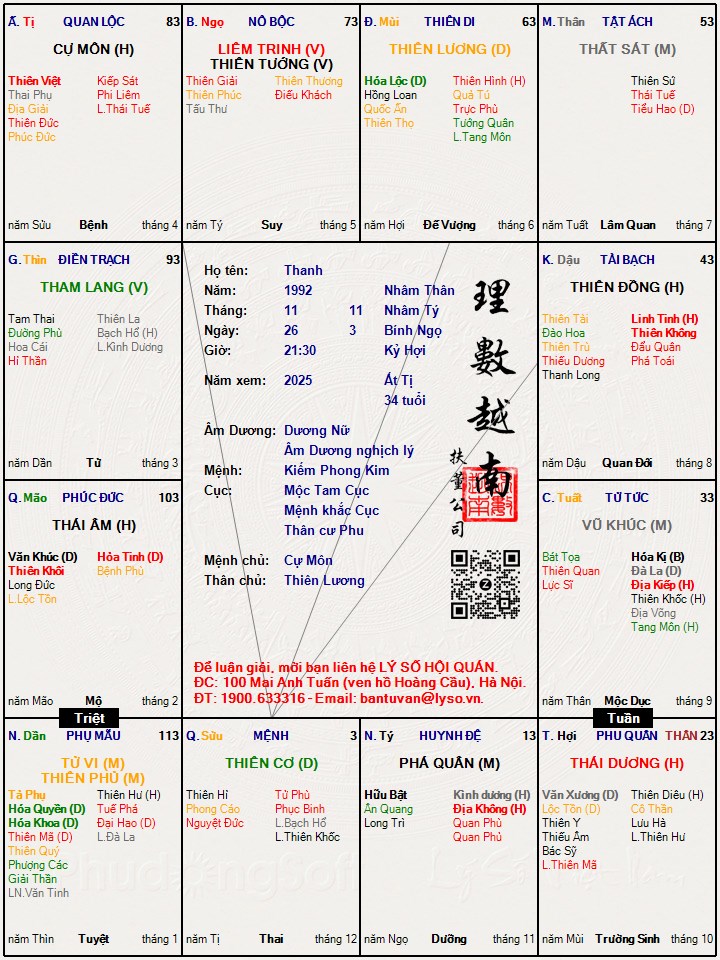 Ấ. Tị QUAN LỘC 83
CỰ MÔN (H)
Thiên Việt Kiếp Sát
Thai Phụ Phi Liêm
Địa Giải L.Thái Tuế
Thiên Đức
Phúc Đức
năm Sửu Bệnh tháng 4
B. Ngọ NÔ BỘC 73
LIÊM TRINH (V)
THIÊN TƯỚNG (V)
Thiên Giải Thiên Thương
Thiên Phúc Điếu Khách
Tấu Thư
năm Tý Suy tháng 5
Đ. Mùi THIÊN DI 63
THIÊN LƯƠNG (D)
Hóa Lộc (D) Thiên Hình (H)
Hồng Loan Quả Tú
Quốc Ấn Trực Phù
Thiên Thọ Tướng Quân
L.Tang Môn
năm Hợi Đế Vượng tháng 6
M. Thân TẬT ÁCH 53
THẤT SÁT (M)
Thiên Sứ
Thái Tuế
Tiểu Hao (D)
năm Tuất Lâm Quan tháng 7
G. Thìn ĐIỀN TRẠCH 93
THAM LANG (V)
Tam Thai Thiên La
Đường Phù Bạch Hổ (H)
Hoa Cái L.Kình Dương
Hỉ Thần
năm Dần Tử tháng 3
Họ tên: Thanh
Năm: 1992 Nhâm Thân
Tháng: 11 11 Nhâm Tý
Ngày: 26 3 Bính Ngọ
Giờ: 21:30 Kỷ Hợi
Năm xem: 2025 Ất Tị
34 tuổi
Âm Dương: Dương Nữ
Âm Dương nghịch lý
Mệnh: Kiếm Phong Kim
Cục: Mộc Tam Cục
Mệnh khắc Cục
Thân cư Phu
Mệnh chủ: Cự Môn
Thân chủ: Thiên Lương
理數越南
扶董公司
Để luận giải, mời bạn liên hệ LÝ SỐ HỘI QUÁN.
ĐC: 100 Mai Anh Tuấn (ven hồ Hoàng Cầu), Hà Nội.
ĐT: 1900.633316 - Email: bantuvan@lyso.vn.
K. Dậu TÀI BẠCH 43
THIÊN ĐỒNG (H)
Thiên Tài Linh Tinh (H)
Đào Hoa Thiên Không
Thiên Trù Đẩu Quân
Thiếu Dương Phá Toái
Thanh Long
năm Dậu Quan Đới tháng 8
Q. Mão PHÚC ĐỨC 103
THÁI ÂM (H)
Văn Khúc (D) Hỏa Tinh (D)
Thiên Khôi Bệnh Phù
Long Đức
L.Lộc Tồn
năm Mão Mộ tháng 2
C. Tuất TỬ TỨC 33
VŨ KHÚC (M)
Bát Tọa Hóa Kị (B)
Thiên Quan Đà La (D)
Lực Sĩ Địa Kiếp (H)
Thiên Khốc (H)
Địa Võng
Tang Môn (H)
năm Thân Mộc Dục tháng 9
Triệt
Tuần
N. Dần PHỤ MẪU 113
TỬ VI (M)
THIÊN PHỦ (M)
Tả Phụ Thiên Hư (H)
Hóa Quyền (D) Tuế Phá
Hóa Khoa (D) Đại Hao (D)
Thiên Mã (D) L.Đà La
Thiên Quý
Phượng Các
Giải Thần
LN.Văn Tinh
năm Thìn Tuyệt tháng 1
Q. Sửu MỆNH 3
THIÊN CƠ (D)
Thiên Hỉ Tử Phù
Phong Cáo Phục Binh
Nguyệt Đức L.Bạch Hổ
L.Thiên Khốc
năm Tị Thai tháng 12
N. Tý HUYNH ĐỆ 13
PHÁ QUÂN (M)
Hữu Bật Kình dương (H)
Ân Quang Địa Không (H)
Long Trì Quan Phù
Quan Phù
năm Ngọ Dưỡng tháng 11
T. Hợi PHU QUÂN THÂN 23
THÁI DƯƠNG (H)
Văn Xương (D) Thiên Diêu (H)
Lộc Tồn (D) Cô Thần
Thiên Y Lưu Hà
Thiếu Âm L.Thiên Hư
Bác Sỹ
L.Thiên Mã
năm Mùi Trường Sinh tháng 10